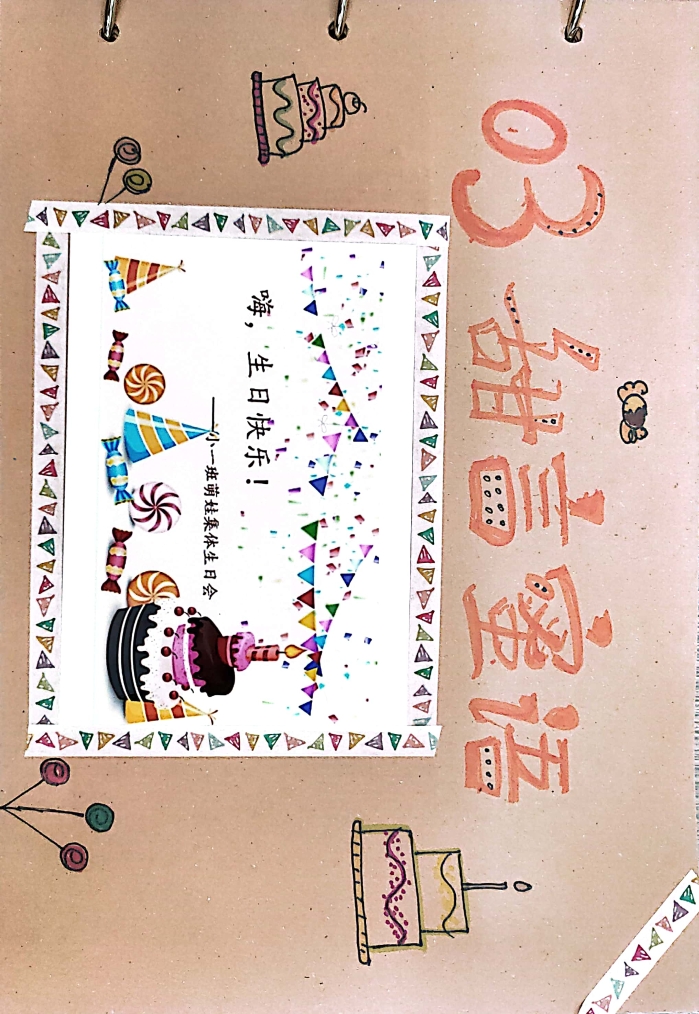 03 甜言蜜语
嗨，生日快乐！
——小一班萌娃集体生日会